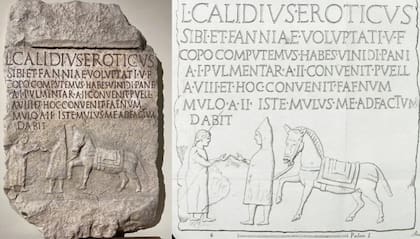 L·CALIDIVS·EROTICVS
SIBI·ET·FANNIAE·VOLVPTATI·V·F
COPO COMPVTEMVS HABES VINI Ↄ I PANE
A·I·PVLMENTAR·A·II·CONVENIT·PVELL
A·VIII·ET·HOC·CONVENIT FAENVM
MVLO·A·II·ISTE MVLVS ME AD FACTVM
DABIT
L·CALIDIVS EROTICVS
SIBI·ET·FANNIAE VOLVPTATI·V·F
COPO COMPVTEMVS HABES VINI Ↄ I PANE
A·I·PVLMENTAR·A·II·CONVENIT PVELL
A·VIII·ET·HOC·CONVENIT FAENVM
MVLO·A·II·ISTE·MVLVS·ME·AD FACTVM
DABIT